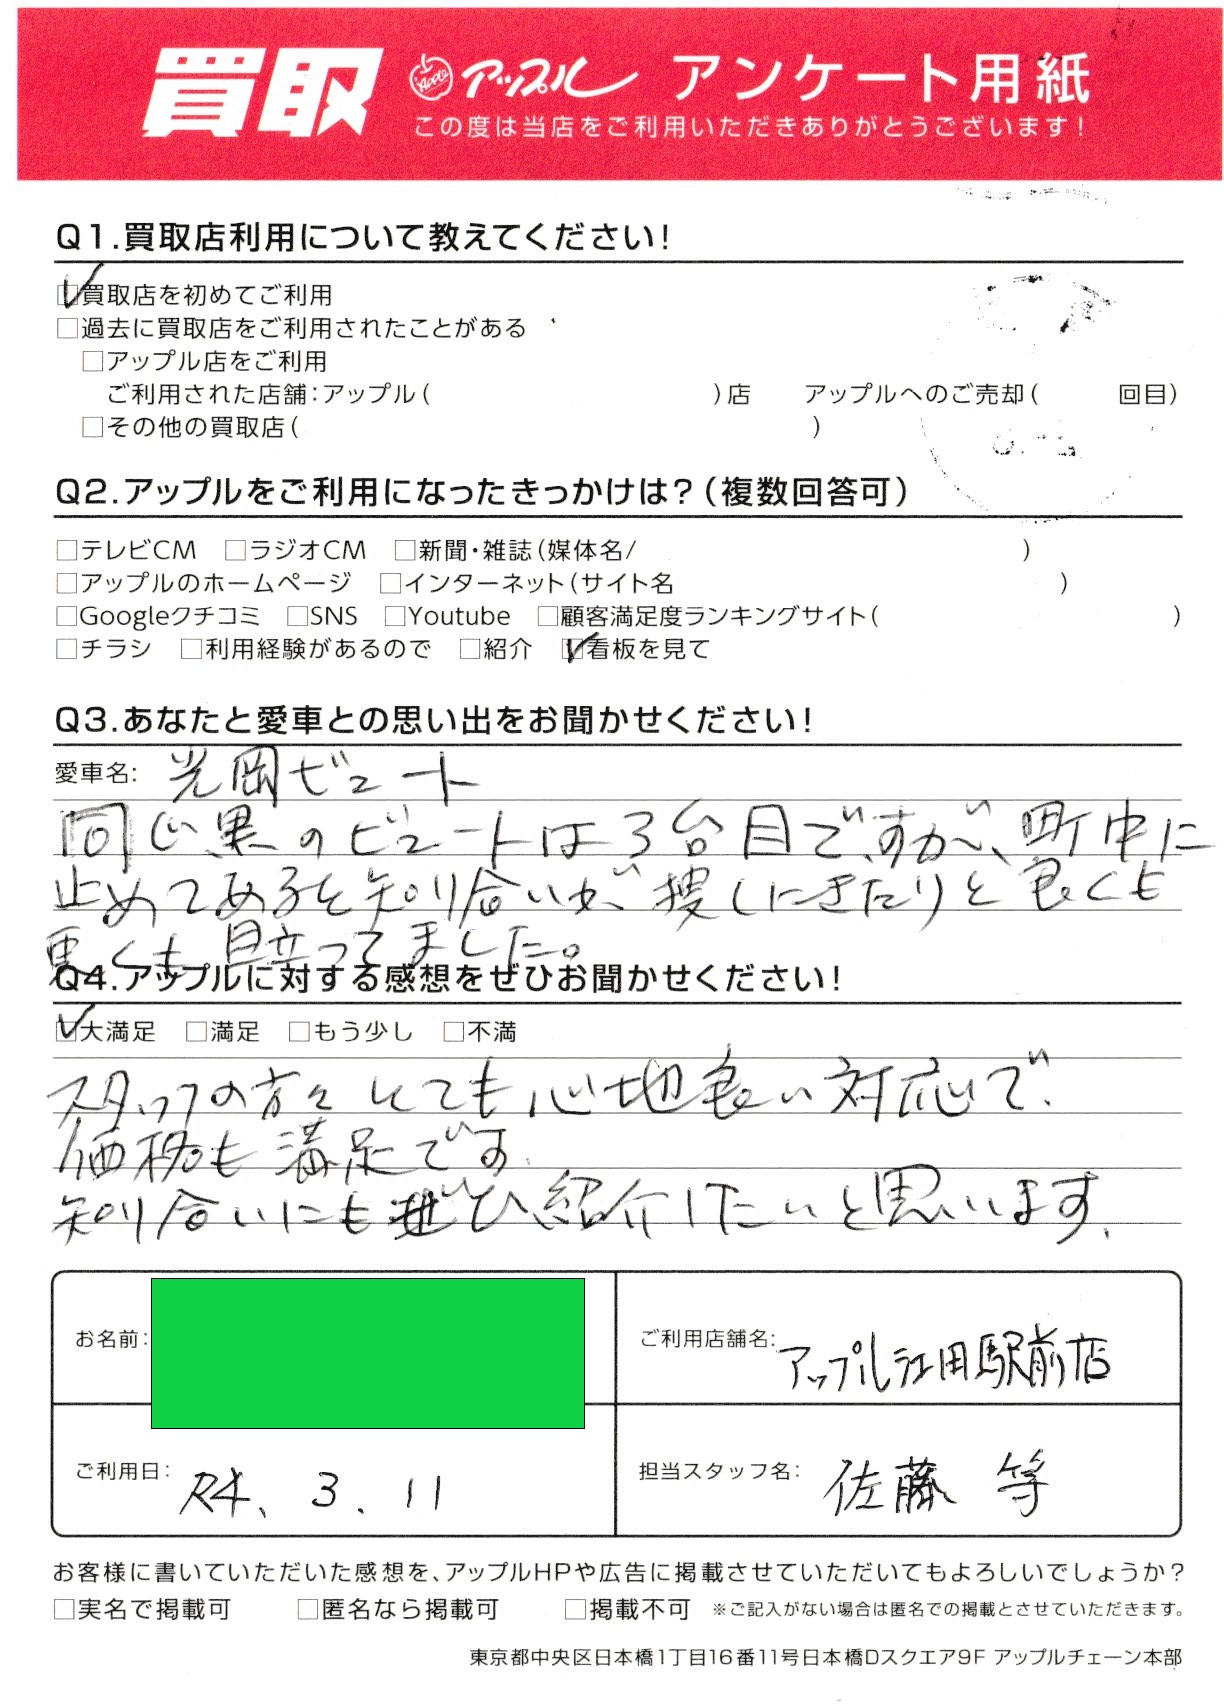 買取 アップル アンケート用紙
この度は当店をご利用いただきありがとうございます！
Q1.買取店利用について教えてください！
☑買取店を初めてご利用
□過去に買取店をご利用されたことがある
□アップル店をご利用
ご利用された店舗：アップル（ ）店 アップルへのご売却（ 回目）
□その他の買取店（ ）
Q2.アップルをご利用になったきっかけは？（複数回答可）
□テレビCM □ラジオCM □新聞・雑誌（媒体名/ ）
□アップルのホームページ □インターネット（サイト名 ）
□Googleクチコミ □SNS □Youtube □顧客満足度ランキングサイト（ ）
□チラシ □利用経験があるので □紹介 ☑看板を見て
Q3.あなたと愛車との思い出をお聞かせください！
愛車名： 光岡ビュート
同じ黒のビュートは3台目ですが、町中に
止めてあると知り合いが、捜しにきたりと良くも
悪くも目立ってました。
Q4.アップルに対する感想をぜひお聞かせください！
☑大満足 □満足 □もう少し □不満
スタッフの方々とても心地良い対応で、
価格も満足です
知り合いにもぜひ紹介したいと思います、
お名前：
ご利用店舗名： アップル江田駅前店
ご利用日： R4、3．11
担当スタッフ名： 佐藤 等
お客様に書いていただいた感想を、アップルHPや広告に掲載させていただいてもよろしいでしょうか？
□実名で掲載可 □匿名なら掲載可 □掲載不可 ※ご記入がない場合は匿名での掲載とさせていただきます。
東京都中央区日本橋1丁目16番11号日本橋Dスクエア9F アップルチェーン本部